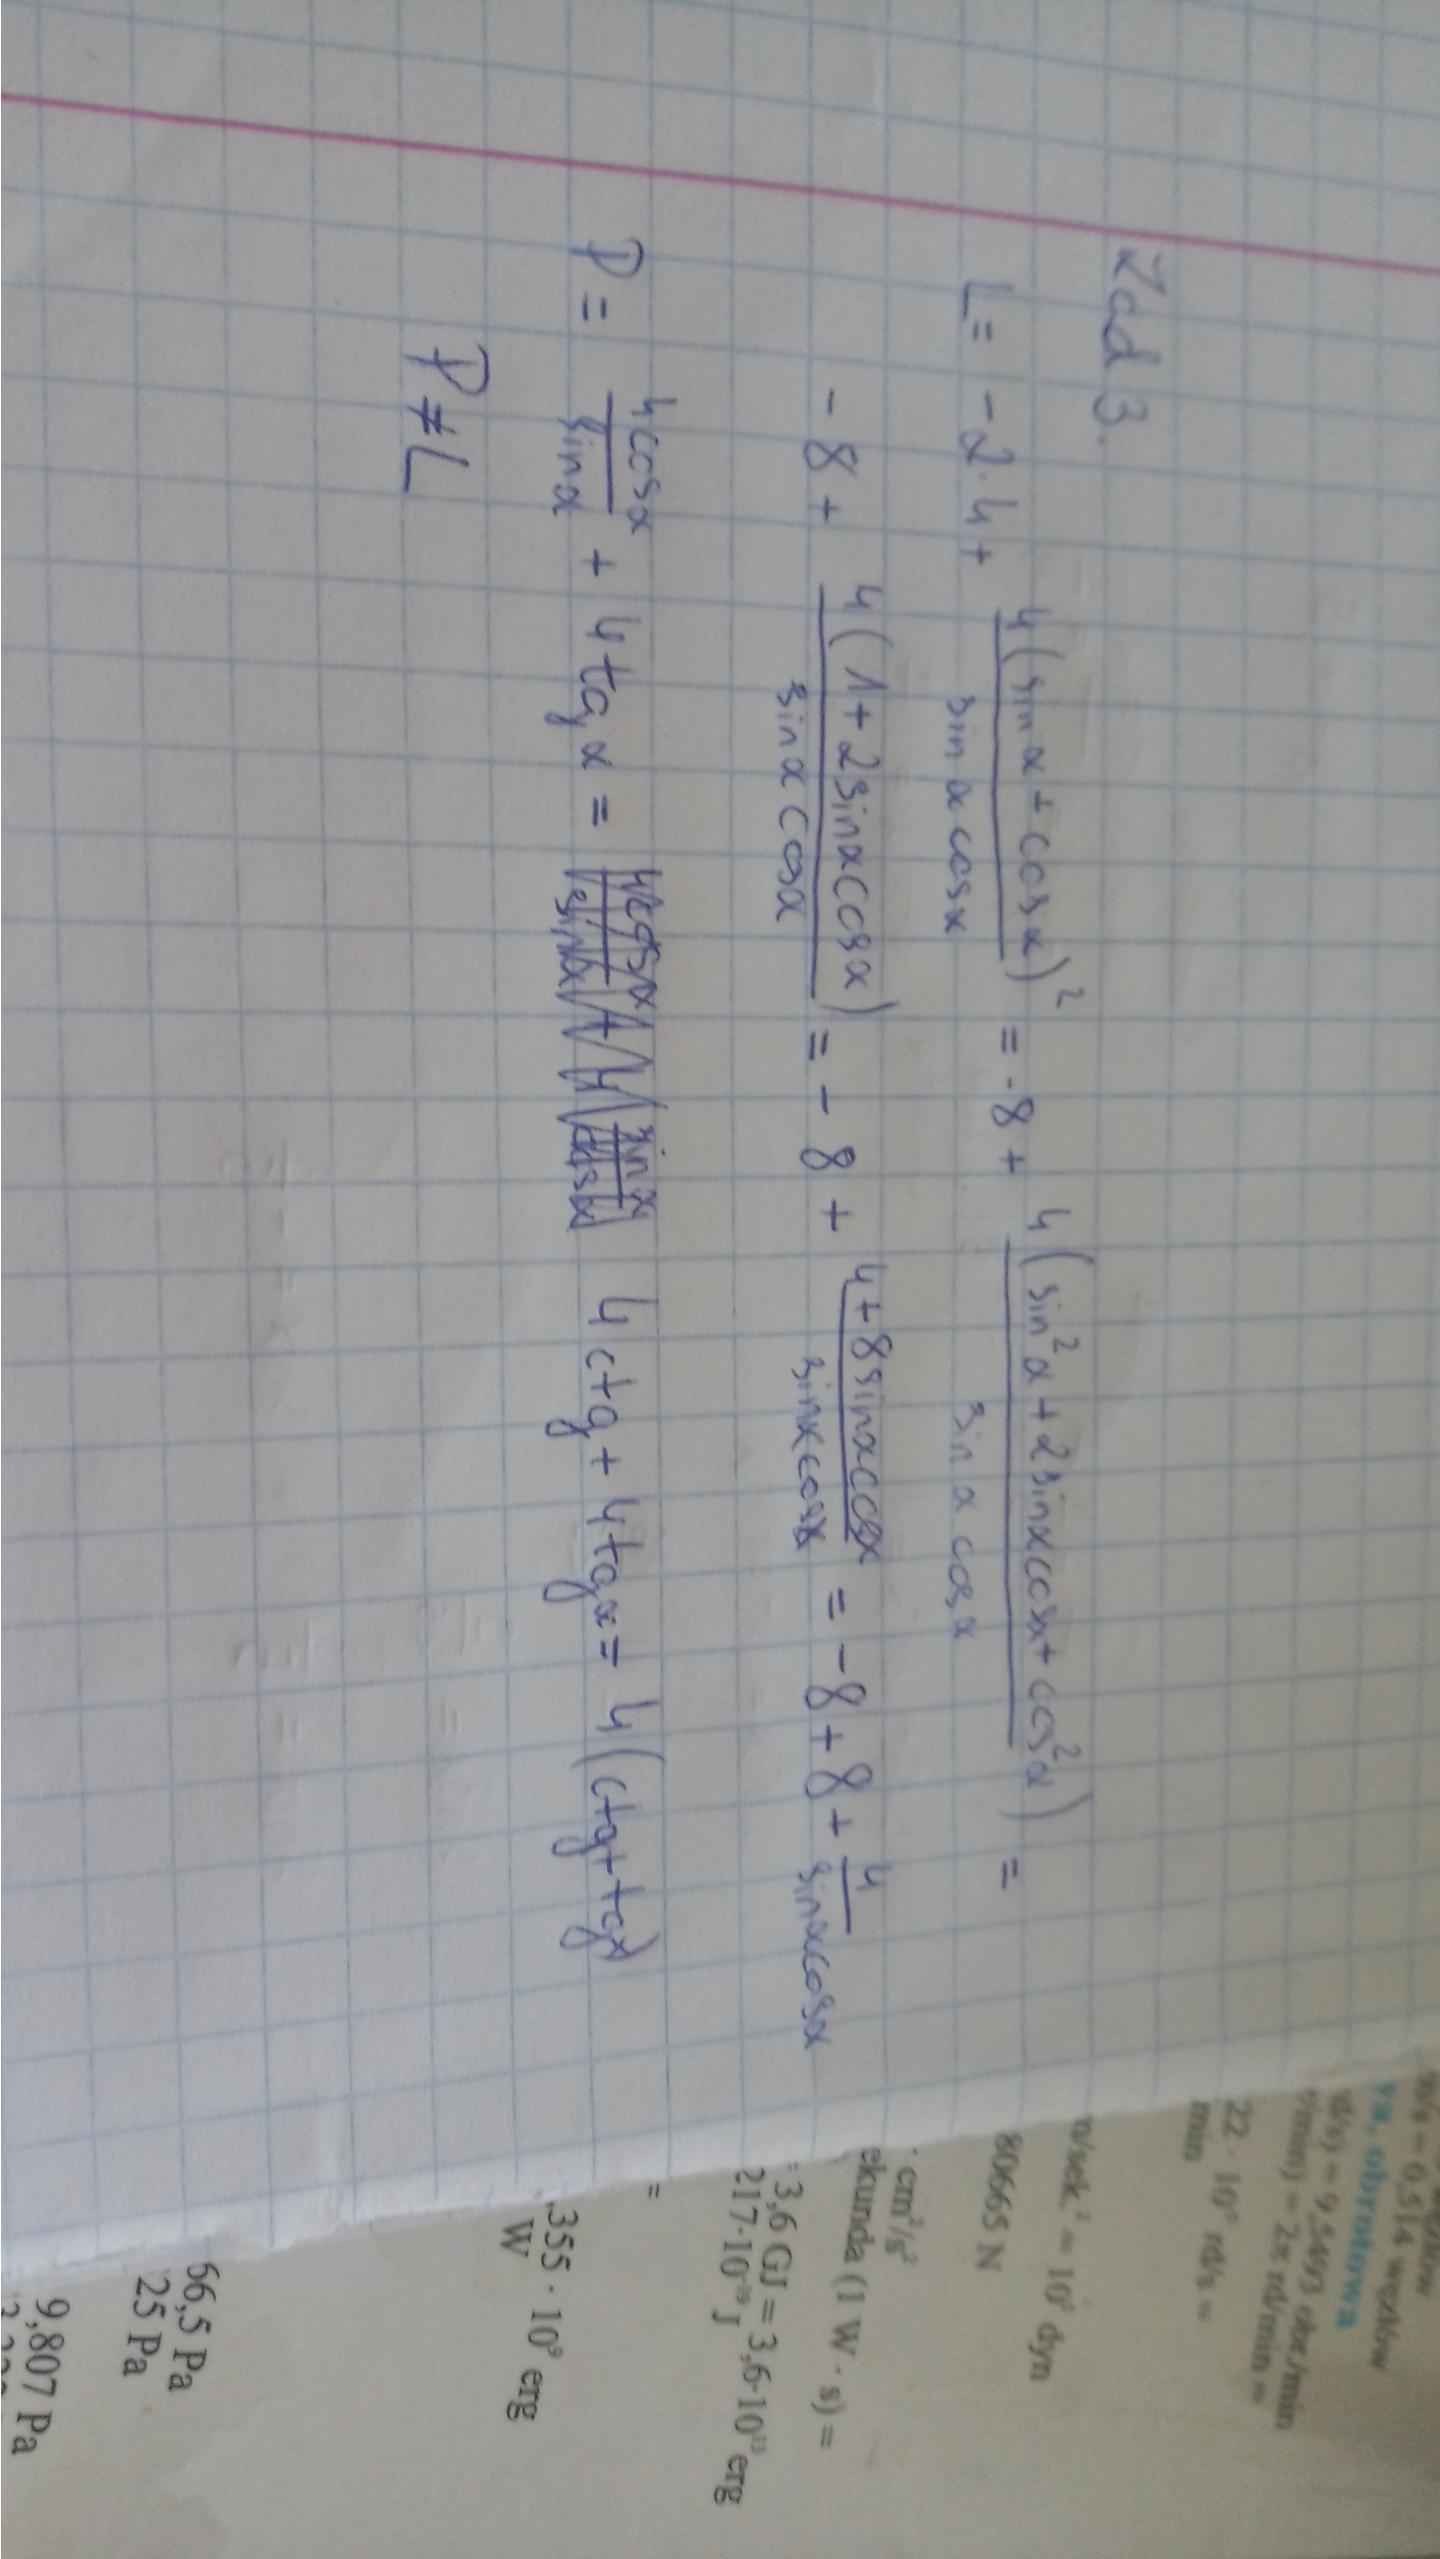 Zad 3.
L = -2·4 + 4(sinα + cosα)² / sinα cosα = -8 + 4(sin²α + 2sinαcosα + cos²α) / sinα cosα =
-8 + 4(1 + 2sinαcosα) / sinα cosα = -8 + 4+8sinαcosα / sinαcosα = -8+8+ 4 / sinαcosα
P = 4cosα / sinα + 4tgα = 4ctg + 4tgα = 4(ctg+tgα)
P ≠ L
m/s = 0,514 węzłów
wa, obrotowa
rd/s) = 9,5493 obr./min
r/min) = 2π rd/min =
rd/s =
min
m/sek.² = 10⁵ dyn
80665 N
· cm²/s²
ekunda (1 W · s) =
= 3,6 GJ = 3,6·10¹³ erg
J
=
,355 · 10⁹ erg
W
66,5 Pa
25 Pa
9,807 Pa